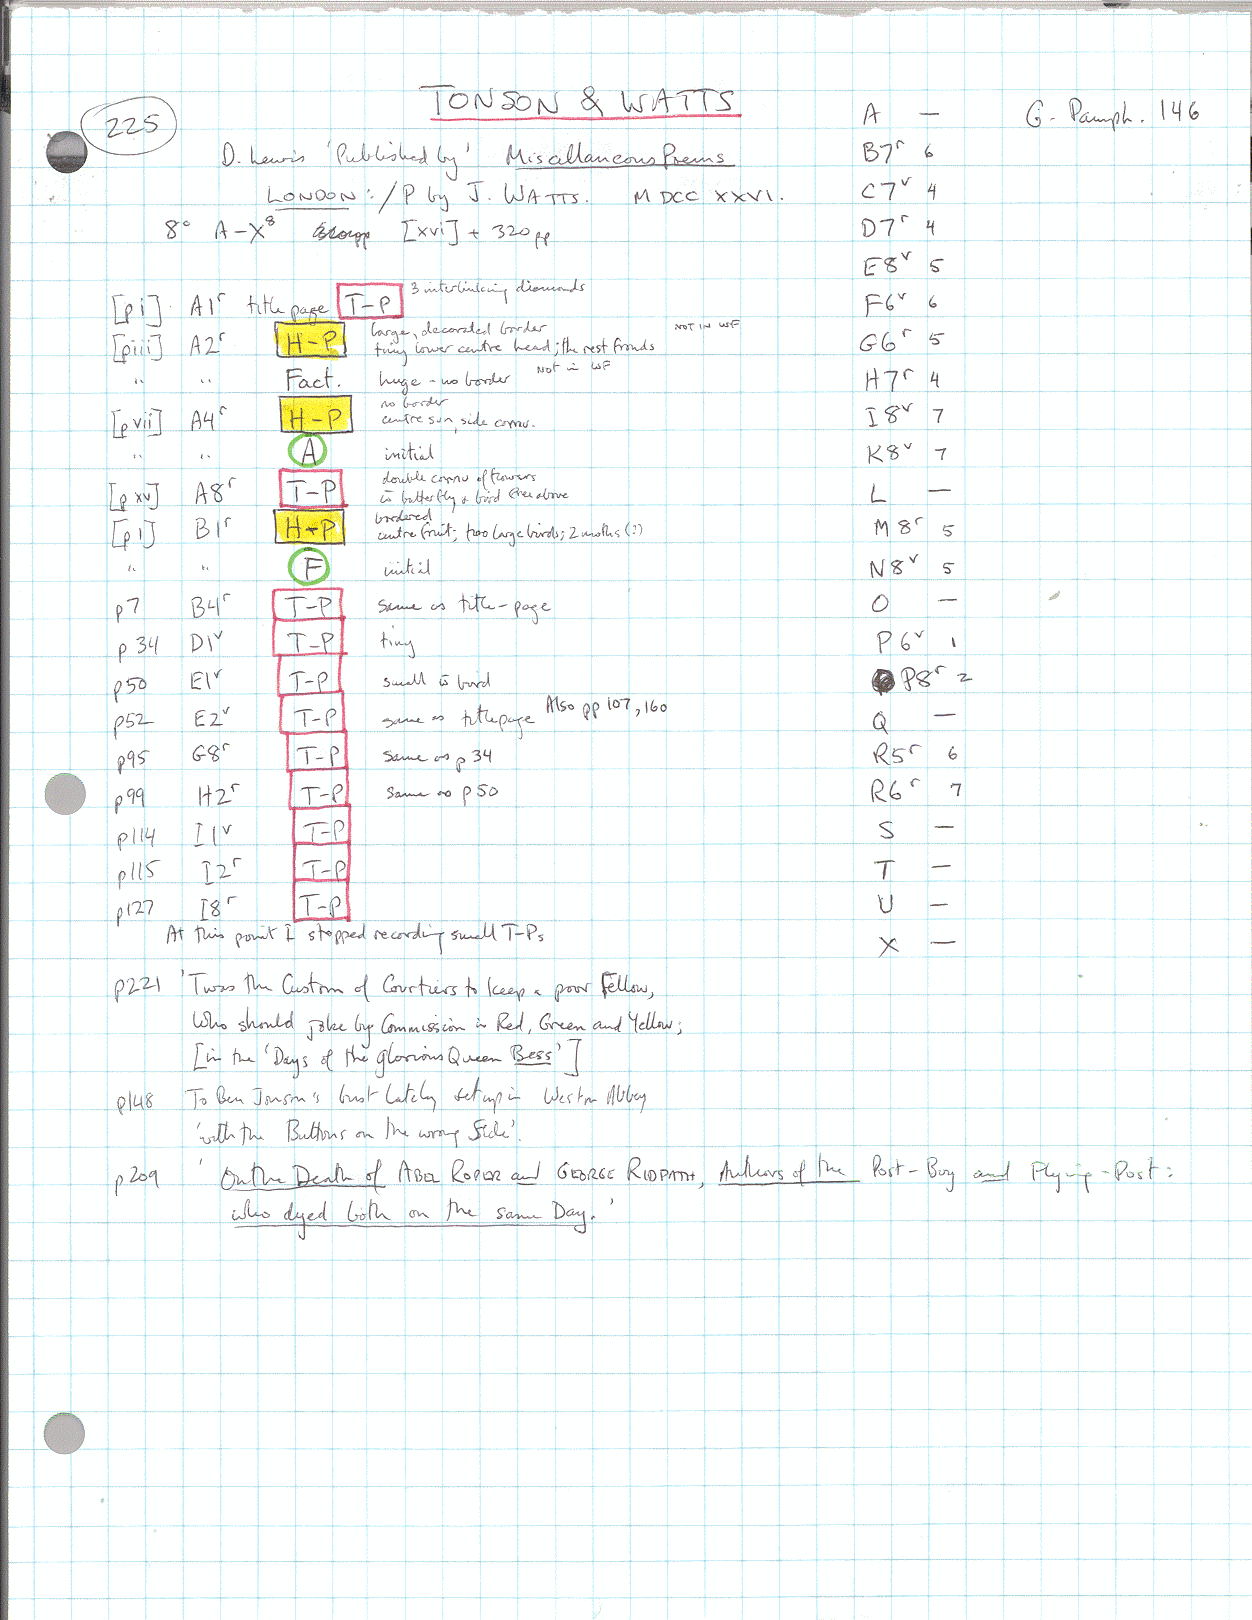 225
TONSON & WATTS
D. Lewis 'Published by' Miscallaneous Poems
LONDON:/P by J. WATTS. MDCCXXVI.
8° A-X⁸ [xvi] + 320pp
[p i] A1ʳ title page T-P 3 interlinking diamonds
[p iii] A2ʳ H-P large, decorated border NOT IN WF
tiny lower centre head; the rest fronds
" " Fact. huge - no border Not in WF
[p vii] A4ʳ H-P no border
centre sun, side cornu.
" " A initial
[p xv] A8ʳ T-P double cornu of flowers
c̄ butterfly & bird free above
[p 1] B1ʳ H-P bordered
centre fruit; two large birds; 2 moths (?)
" " F initial
p7 B4ʳ T-P same as title-page
p34 D1ᵛ T-P tiny
p50 E1ᵛ T-P small c̄ bird
p52 E2ᵛ T-P same as titlepage Also pp 107, 160
p95 G8ʳ T-P same as p34
p99 H2ʳ T-P same as p50
p114 I1ᵛ T-P
p115 I2ʳ T-P
p127 I8ʳ T-P
At this point I stopped recording small T-Ps
p221 'Twas the Custom of Courtiers to keep a poor Fellow,
Who should joke by Commission in Red, Green and Yellow;
[in the 'Days of the glorious Queen Bess']
p148 To Ben Jonson's bust lately set up in Westm Abbey
'with the Buttons on the wrong Side'.
p209 'On the Death of ABEL ROPER and GEORGE RIDPATH, Authors of the Post-Boy and Flying-Post:
who dyed both on the same Day.'
A —
B7ʳ 6
C7ᵛ 4
D7ʳ 4
E8ᵛ 5
F6ᵛ 6
G6ʳ 5
H7ʳ 4
I8ᵛ 7
K8ᵛ 7
L —
M8ʳ 5
N8ᵛ 5
O —
P6ᵛ 1
P8ʳ 2
Q —
R5ʳ 6
R6ʳ 7
S —
T —
U —
X —
G. Pamph. 146